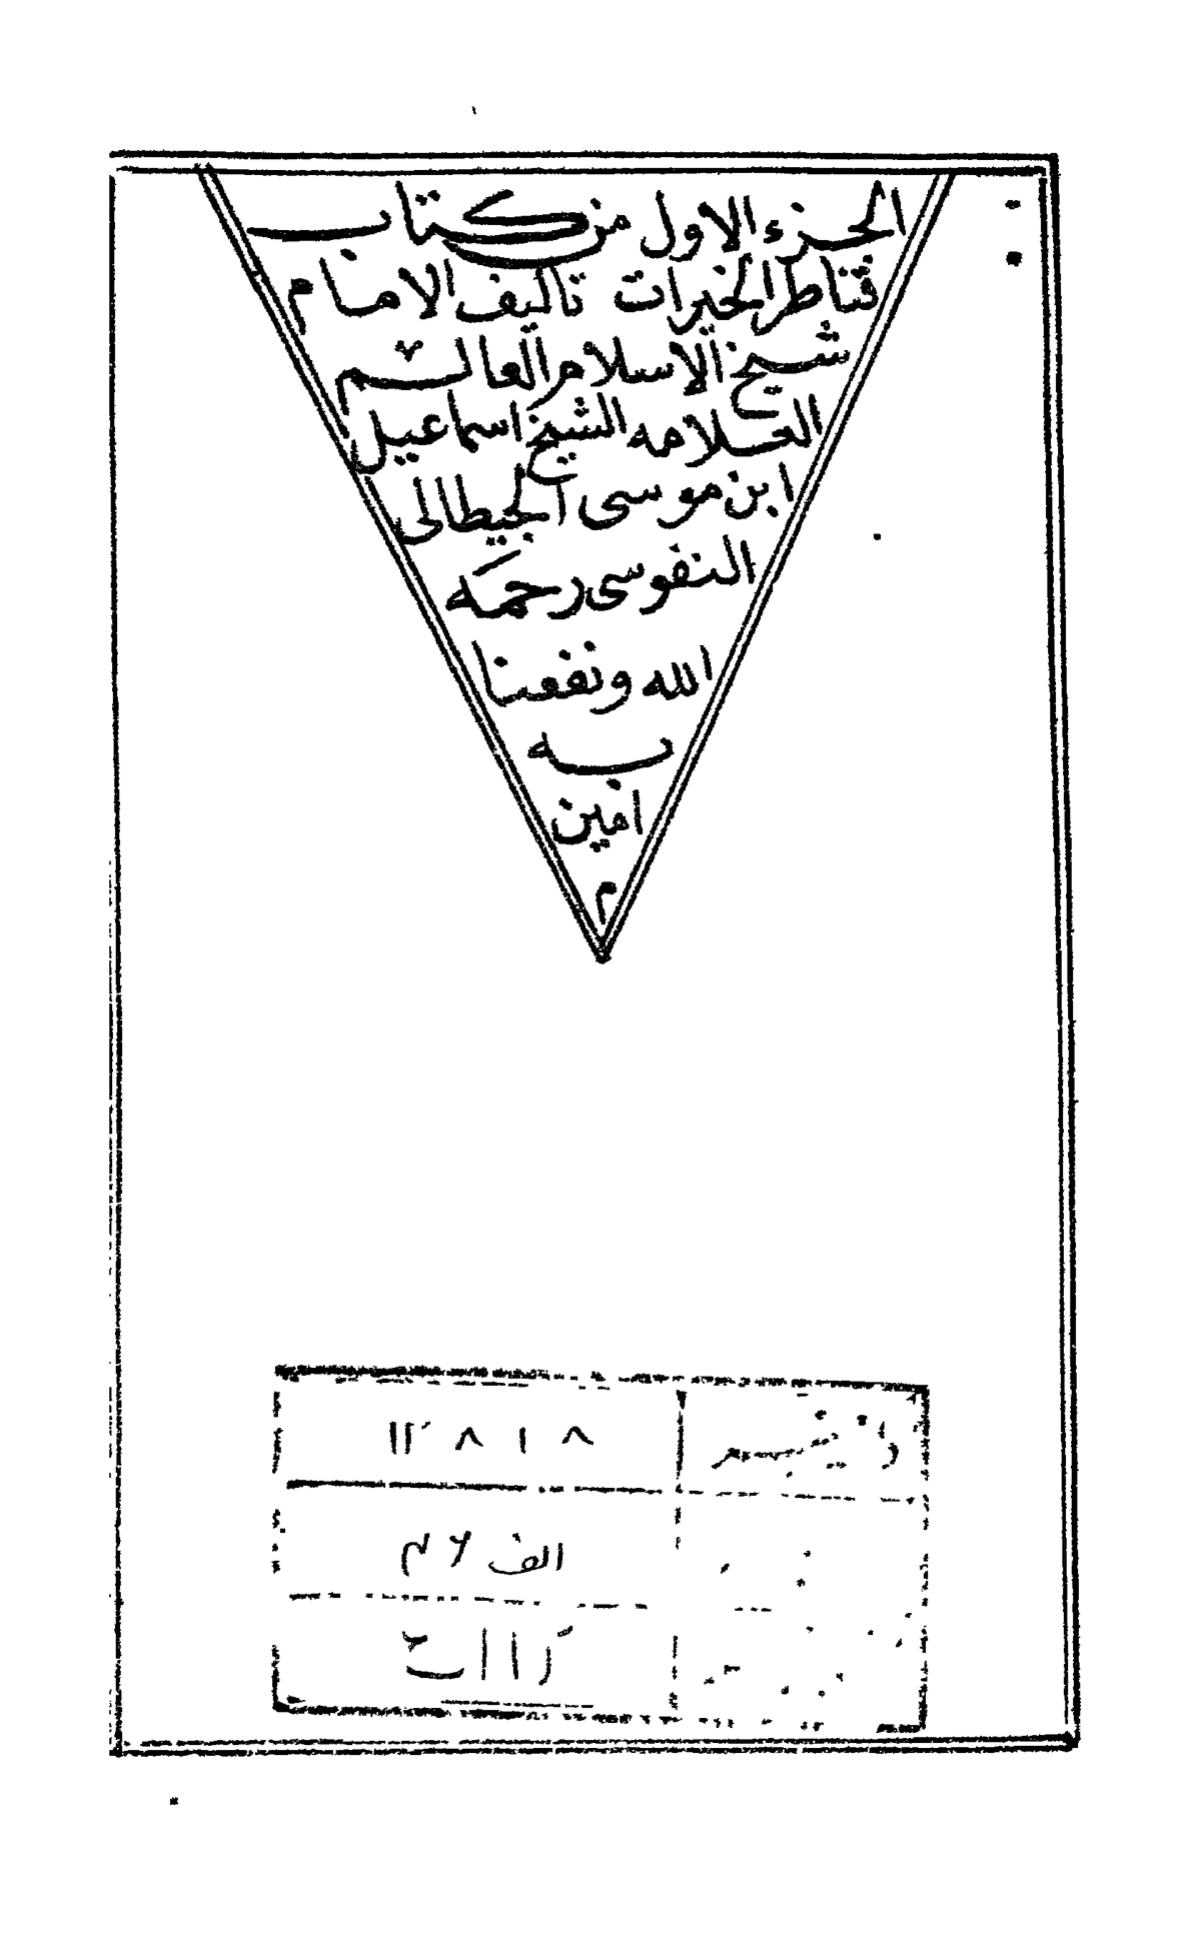 الجزء الاول من كتاب
قناطر الخيرات تاليف الامام
شيخ الإسلام العالم
العلامه الشيخ اسماعيل
ابن موسى الجيطالى
النفوسى رحمه
الله ونفعنا
به
امين
م
الف